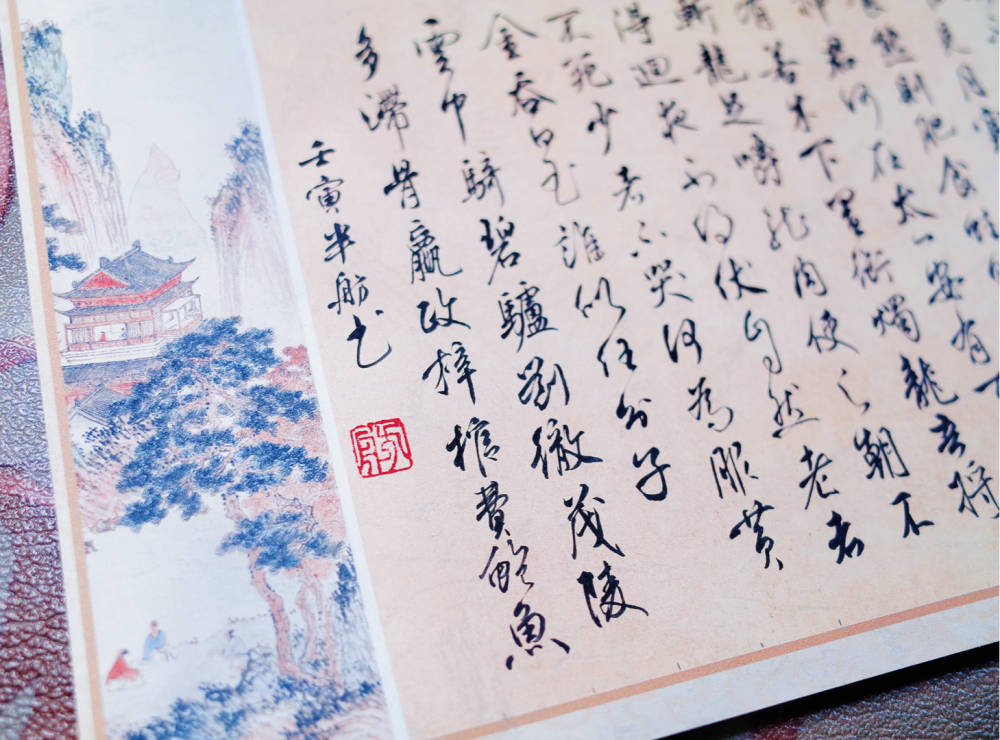 見月寒
熊則肥食蛙
神君何在太一安有
有若木下置銜燭龍吾將
斬龍足嚼龍肉使之朝不
得迴夜不得伏自然老者
不死少者不哭何為服黃
金吞白玉誰似任公子
雲中騎碧驢劉徹茂陵
多滯骨嬴政梓棺費鮑魚
壬寅半舫书